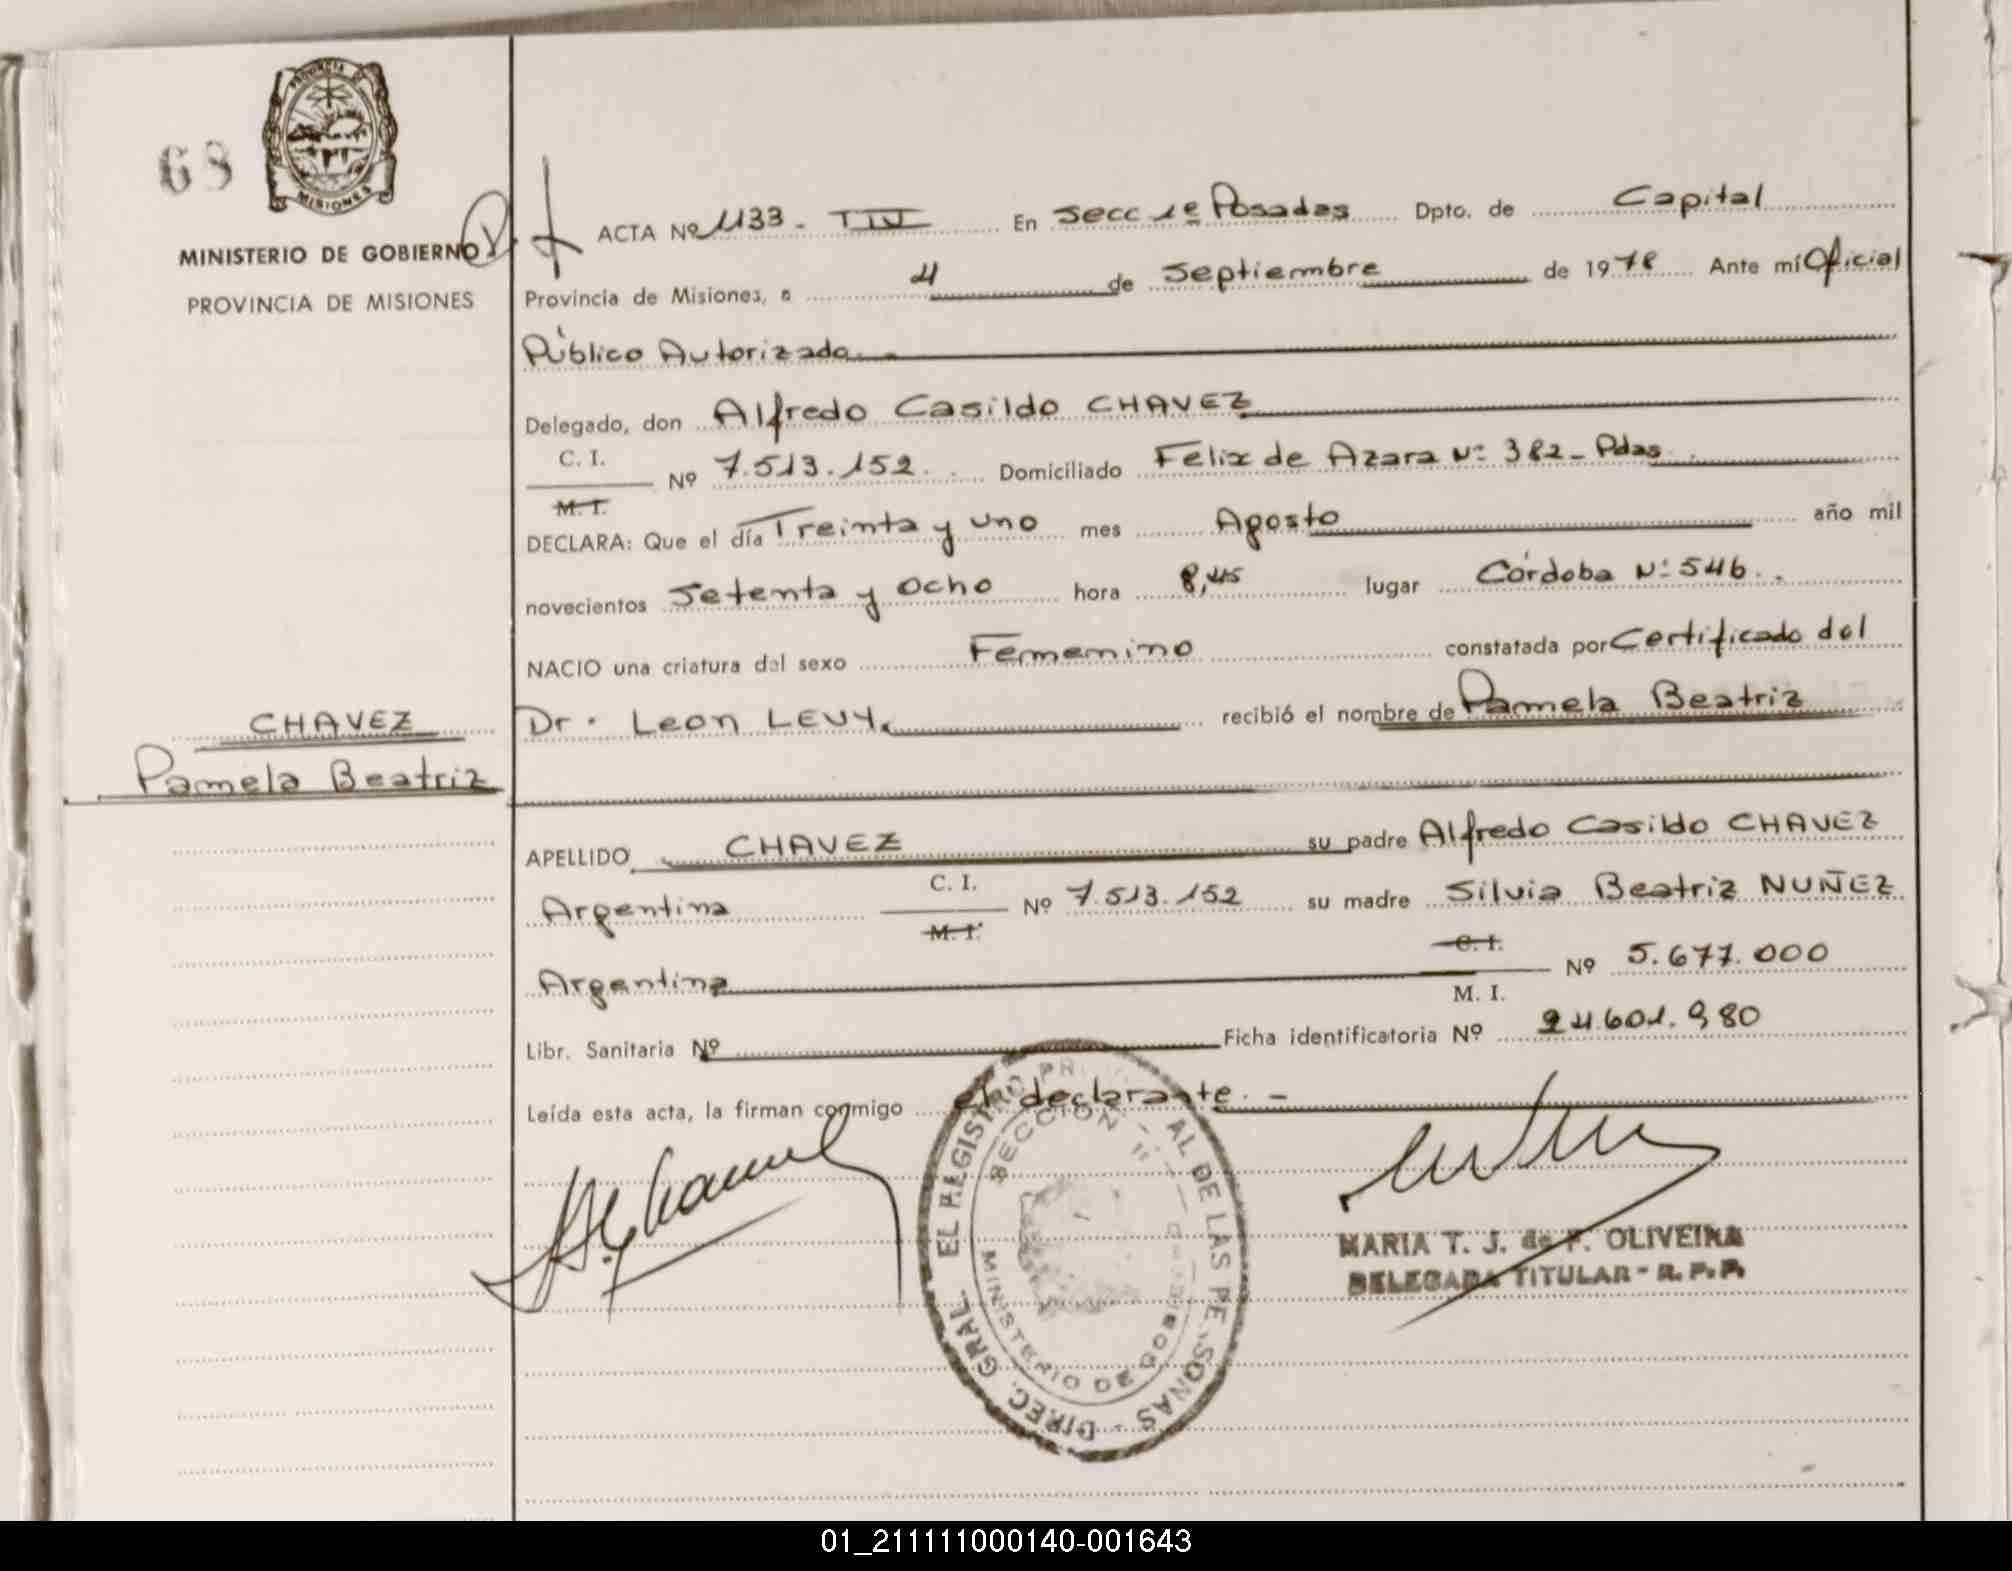 PROVINCIA DE
MISIONES
68
MINISTERIO DE GOBIERNO
PROVINCIA DE MISIONES
ACTA Nº 1133 - T IV En Secc 1º Posadas Dpto. de Capital
Provincia de Misiones, a 4 de Septiembre de 1978 Ante mí Oficial
Público Autorizado.
Delegado, don Alfredo Casildo CHAVEZ
C. I.
M. I.
Nº 7.513.152. Domiciliado Felix de Azara Nº 382 - Pdas.
DECLARA: Que el día Treinta y uno mes Agosto año mil
novecientos Setenta y Ocho hora 8,45 lugar Córdoba Nº 546.
NACIO una criatura del sexo Femenino constatada por Certificado del
Dr. Leon LEVY. recibió el nombre de Pamela Beatriz
CHAVEZ
Pamela Beatriz
APELLIDO CHAVEZ su padre Alfredo Casildo CHAVEZ
Argentina C. I. Nº 7.513.152 su madre Silvia Beatriz NUÑEZ
M. I.
Argentina C. I. Nº 5.677.000
M. I.
Libr. Sanitaria Nº Ficha identificatoria Nº 24.601.980
Leída esta acta, la firman conmigo el declarante. -
DIREC. GRAL. EL REGISTRO PR AL DE LAS PE SONAS -
SECCION 1ª
MINISTERIO DE GOBIERNO
MARIA T. J. de F. OLIVEIRA
DELEGADA TITULAR - R. P. P.
01_211111000140-001643